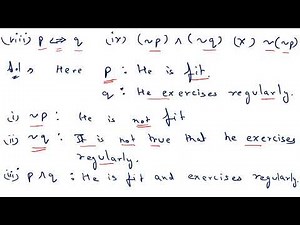 (viii) p ⇔ q (ix) (~p) ∧ (~q) (x) ~(~p)
Sol. Here p : He is fit.
q : He exercises regularly.
(i) ~p : He is not fit
(ii) ~q : It is not true that he exercises
regularly.
(iii) p ∧ q : He is fit and exercises regularly.